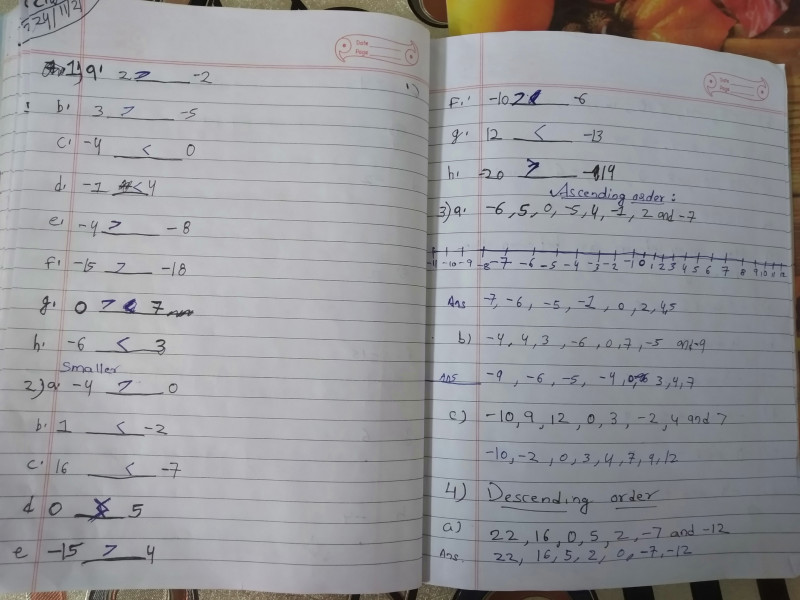 5:24/11/2
Date
Page
1) a. 2 > -2
b. 3 > -5
c. -4 < 0
d. -1 < 4
e. -4 > -8
f. -15 > -18
g. 0 > < 7
h. -6 < 3
Smaller
2) a. -4 > 0
b. 1 < -2
c. 16 < -7
d 0 5
e -15 > 4
Date
Page
F. -10 -6
g. 12 < -13
h. -20 > 19
Ascending order:
3) a. -6, 5, 0, -5, 4, -1, 2 and -7
-11 -10 -9 -8 -7 -6 -5 -4 -3 -2 -1 0 1 2 3 4 5 6 7 8 9 10 11 12
Ans -7, -6, -5, -1, 0, 2, 4, 5
b) -4, 4, 3, -6, 0, 7, -5 and -9
Ans -9, -6, -5, -4, 0, 3, 4, 7
c) -10, 9, 12, 0, 3, -2, 4 and 7
-10, -2, 0, 3, 4, 7, 9, 12
4) Descending order
a) 22, 16, 0, 5, 2, -7 and -12
Ans. 22, 16, 5, 2, 0, -7, -12